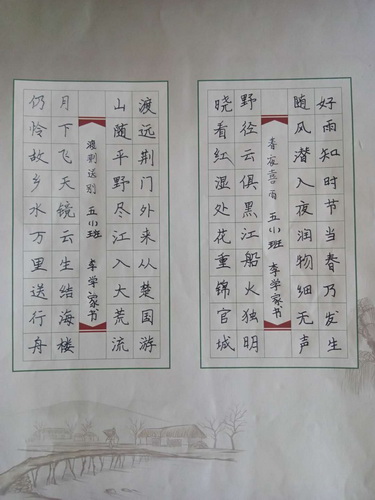 好雨知时节当春乃发生
随风潜入夜润物细无声
春夜喜雨 五(1)班 李学家书
野径云俱黑江船火独明
晓看红湿处花重锦官城
渡远荆门外来从楚国游
山随平野尽江入大荒流
渡荆送别 五(1)班 李学家书
月下飞天镜云生结海楼
仍怜故乡水万里送行舟